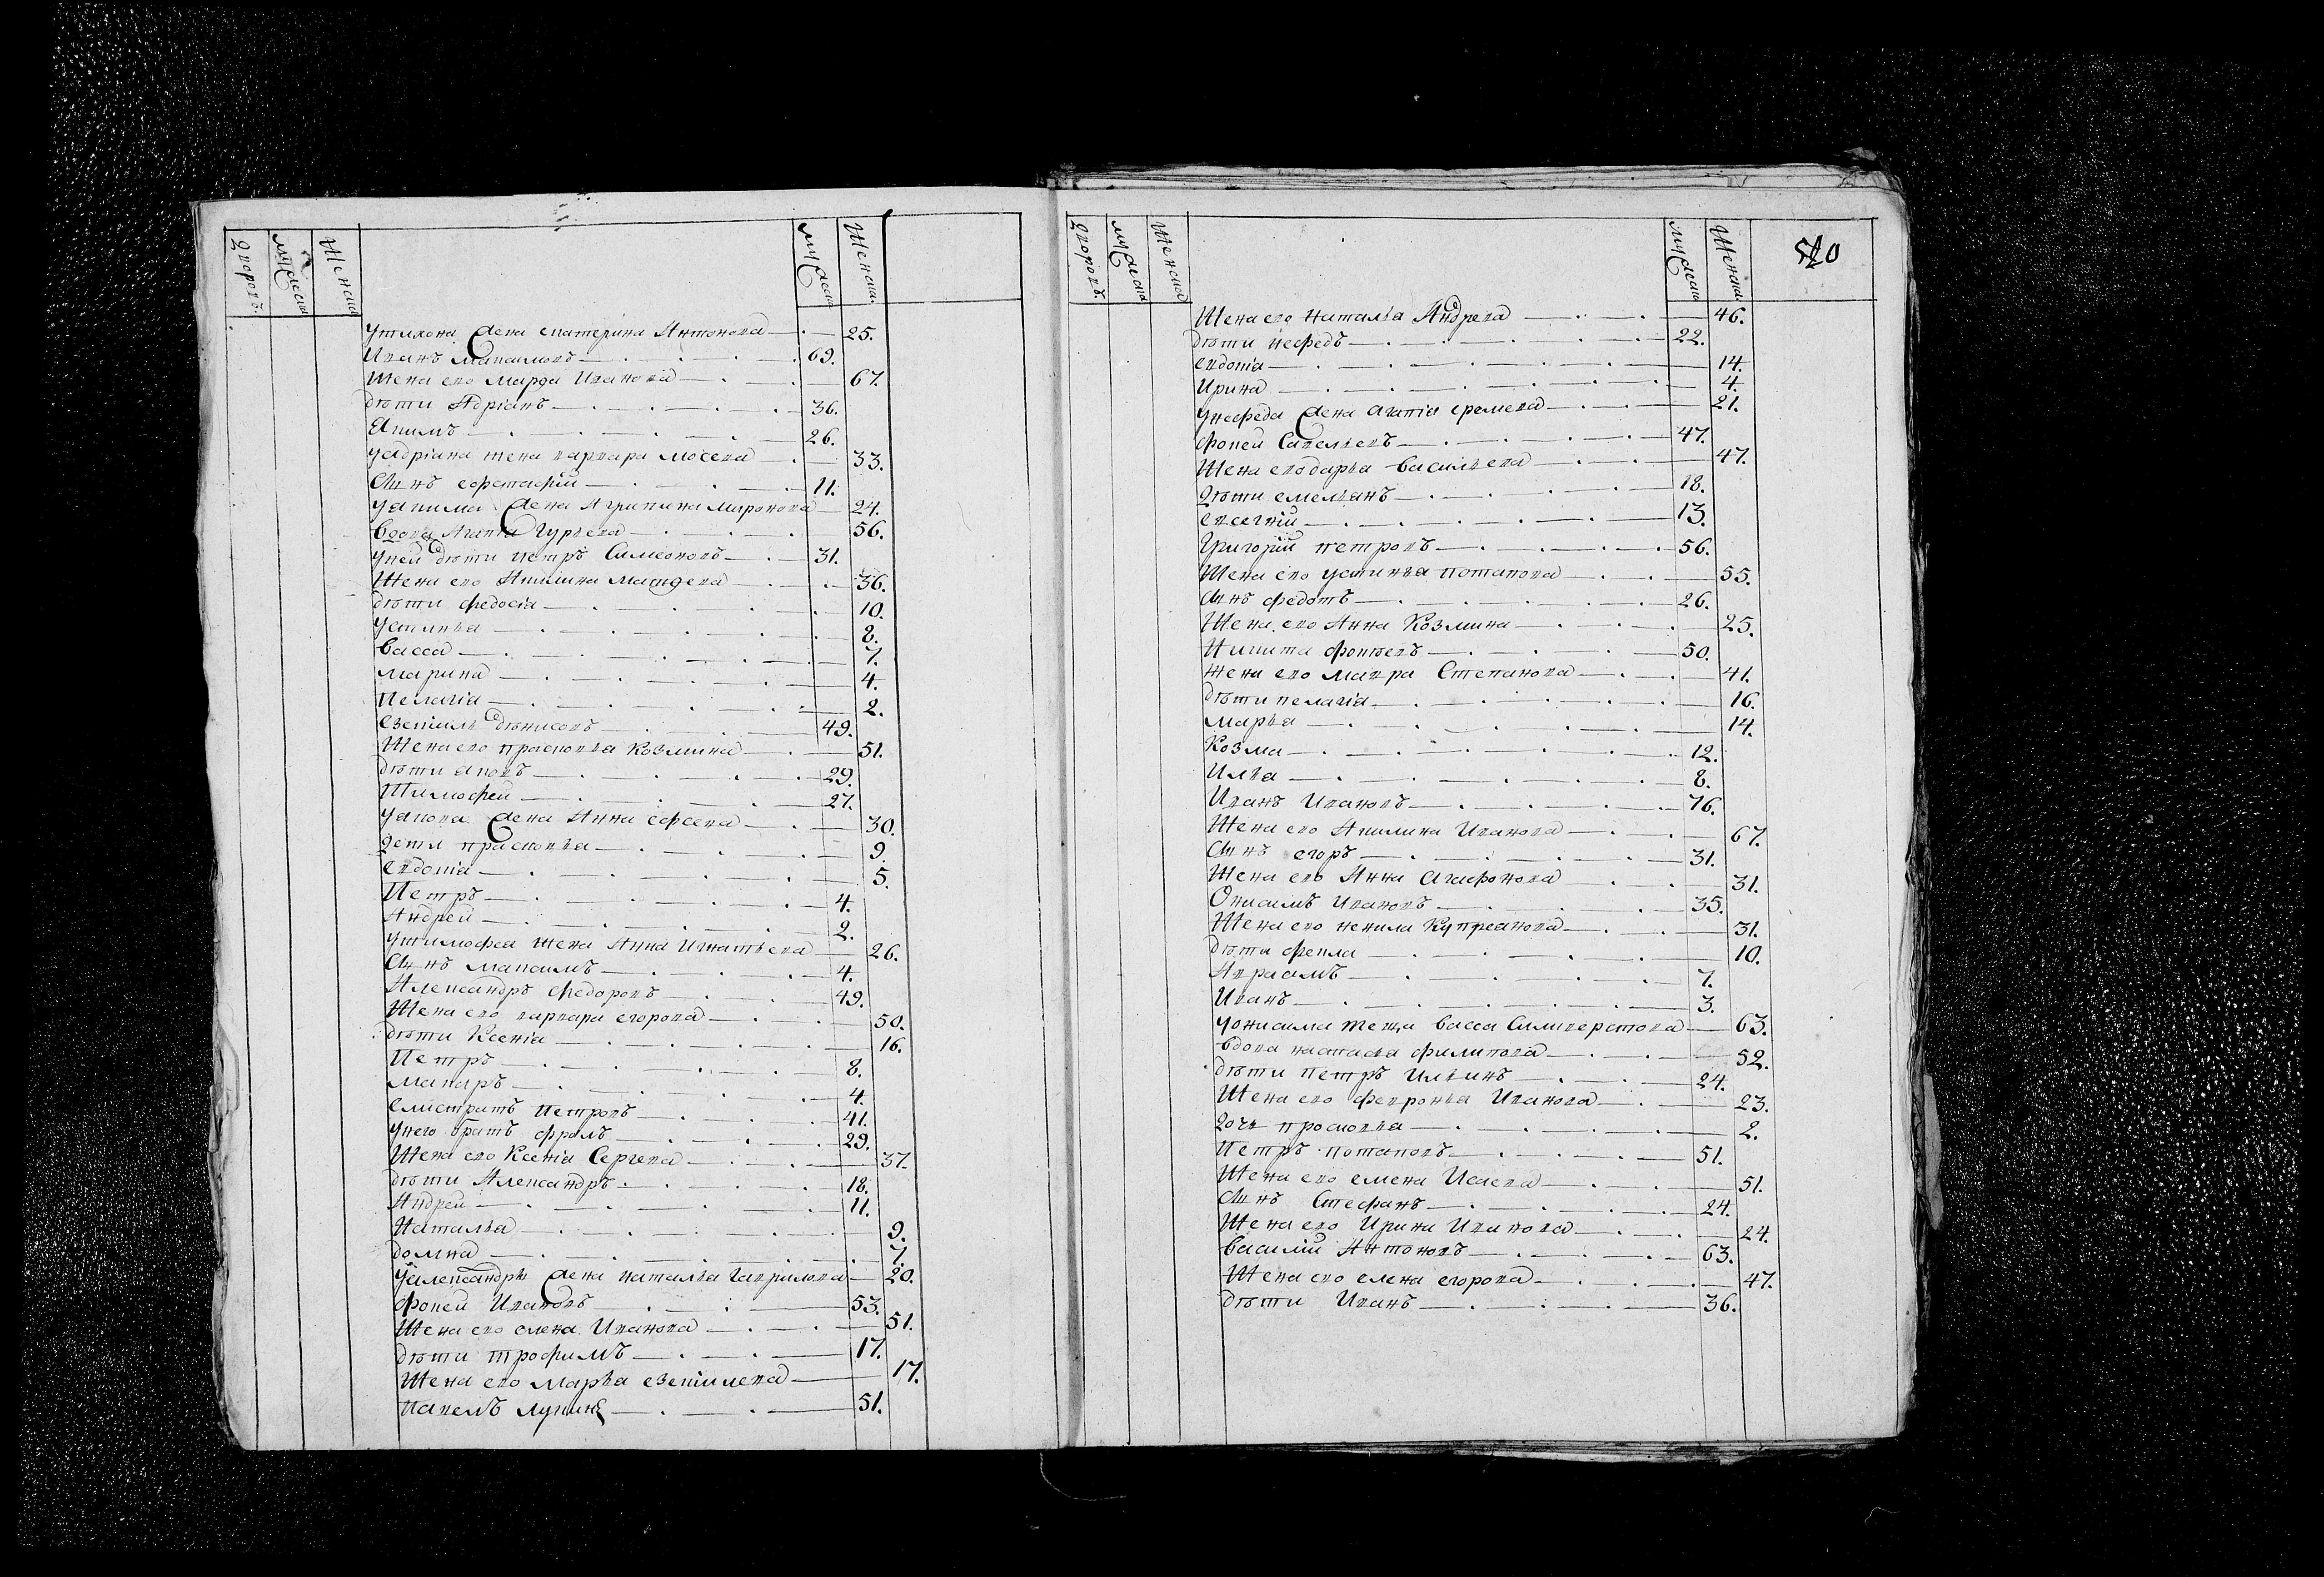 дворовъ. мужеска женска мужеска женска.
Утихона жена екатерина Антонова 25.
Иванъ Максимовъ 69.
Жена его Марфа Иванова 67.
дѣти Адріанъ 36.
Акимъ 26.
Уадріана жена варвара Мосеева 33.
Сынъ еорстафій 11.
Уакима жена Агрипина Миронова 24.
Вдова Агапіа Гурьева 56.
Уней дѣти петръ Симеоновъ 31.
Жена его Акилина 36.
дѣти федосіа 10.
Устинья 8.
Васса 7.
Марина 4.
Пелагіа 2.
Езекииль дѣнисовъ 49.
Жена его прасковья Козмина 51.
дѣти аковъ 29.
Тимофей 27.
Уакова жена Анна ефсева 30.
дети прасковья 9.
Евдокіа 5.
Петръ 4.
Андрей 2.
Утимофеа жена Анна Игнатьева 26.
Сынъ Максимъ 4.
Александръ Федоровъ 49.
Жена его варвара егорова 50.
дѣти Ксеніа 16.
Петръ 8.
Макаръ 4.
Елистратъ Петровъ 41.
Унего братъ фролъ 29.
Жена его Ксеніа Сергева 37.
дѣти Александръ 18.
Андрей 11.
Наталья 9.
домна 7.
Уалександра жена наталья гаврилова 20.
Фокей Ивановъ 53.
Жена его елена Иванова 51.
дѣти трофимъ 17.
Жена его Марья езекиилева 17.
Павелъ лукинъ 51.
дворовъ. мужеска женска мужеска женска. 520
Жена его Наталья Андрева 46.
дѣти нефедъ 22.
Евдокіа 14.
Ирина 4.
Унефеда жена агапіа еремева 21.
Фокей Савельевъ 47.
Жена его дарья Васильева 47.
Дѣти емельянъ 18.
Евсегній 13.
Григорій петровъ 56.
Жена его устинья потапова 55.
Сынъ федотъ 26.
Жена его Анна Козмина 25.
Никита фокѣевъ 50.
Жена его Мавра Степанова 41.
дѣти пелагіа 16.
Марья 14.
Козма 12.
Илья 8.
Иванъ Ивановъ 76.
Жена его Акилина Иванова 67.
Сынъ егоръ 31.
Жена его Анна агафонова 31.
Онисимъ Ивановъ 35.
Жена его ненила Купреанова 31.
Дѣти фекла 10.
Авраамъ 7.
Иванъ 3.
Уонисима теща васса Силиверстова 63.
Вдова настасья филипова 52.
дѣти петръ Ильинъ 24.
Жена его февронья Иванова 23.
дочь прасковья 2.
Петръ потаповъ 51.
Жена его елена Исаева 51.
Сынъ Стефанъ 24.
Жена его Ирина Иванова 24.
Василій Антоновъ 63.
Жена его елена егорова 47.
дѣти Иванъ 36.